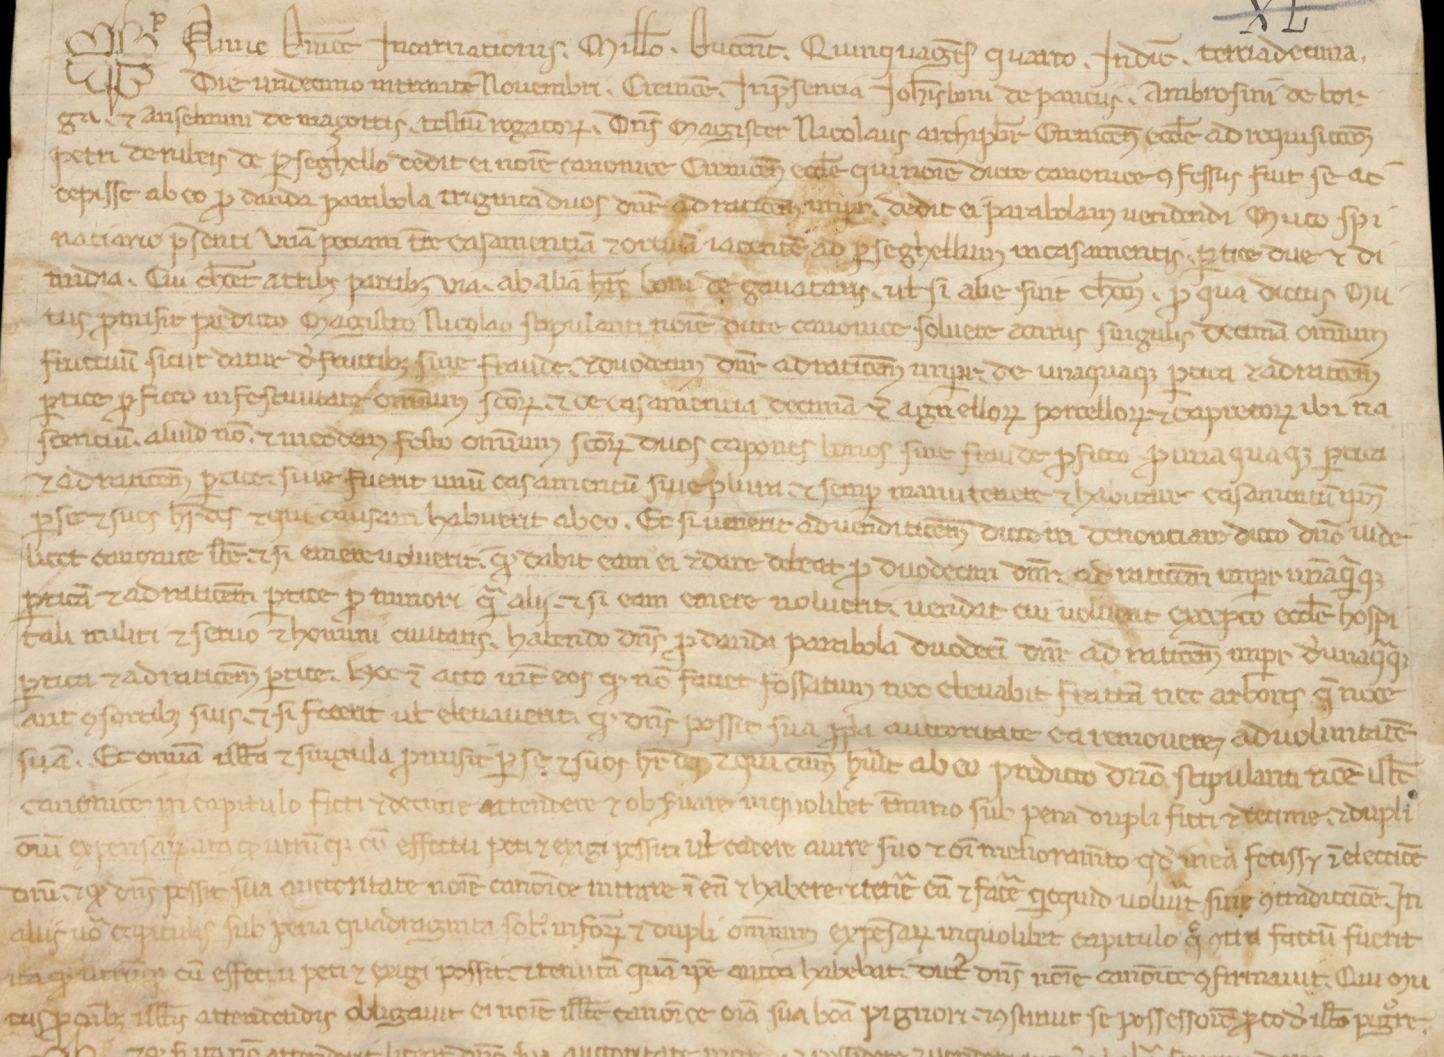 XL
Anno dnice Incarnationis. Millo. ducent. Quinquages quarto. Indic. terciadecima.
Die undecimo intrante Novembri. Creme. In psencia Johisboni de pancus. Ambrosini de bor
gu. & Anselmini de maçottis. testiu rogator. Dns Magister Nicolaus archipbr Cremens ecclie ad requisitoem
petri de rubeis de pseghello dedit ei noie canonice Cremens ecclie qui noie dicte canonice ꝯfessus fuit se ac
cepisse ab eo ꝓ danda parabola triginta duos dnr ad ratioem impr. dedit ei parabolam vendendi Muto spi
naciario psenti unā peciam tre casamentiā & ortivā iacentē ad pseghellum in casamentis. ꝑtice due & di
midia. Cui cheret a trib; partib; via. ab aliā hrs boni de gavataris. ut si alie sint cheren. ꝓ qua dictus Mu
tus ꝓmisit predicto Magistro Nicolao stipulanti noie dicte canonice solvere annis singulis decimā omnium
fructuū sicut datur de fructib; sine fraude. & duodecim dnr ad ratioem impr. de unaquaq; ꝑtica & ad ratioem
ꝑtice ꝓ ficto in festivitate omnium scor. & de casamentia decimā & agnellor porcellor & capretor ibi na
scenciū. aliud nō. & in eodem festo omnium scor duos capones bonos sine fraude ꝓ ficto ꝓ unaquaq; ꝑtica
& ad ratioem ꝑtice. sive fuerit unū casamentū sive plura. & semp manutenere & habitare casamentū
ꝑ se & suos hrdes & qui causam habuerit ab eo. Et si venerit ad venditioem dicte rei denonciare dicto dno vide
licet canonice illi. & si emere voluerit. qd dabit eam ei & dare debeat ꝓ duodecim dnr. ad ratioem impr unāquaq;
ꝑticā & ad ratioem ꝑtice ꝓ minori quā alii. & si eam emere noluerit. vendat cui voluerit excepto ecclie hospi
tali militi & servo & homini civitatis. habendo dns ꝓ danda parabola duodeci dnr ad ratioem impr de unaquaq;
ꝑtica & ad ratioem ꝑtice. Hoc ē acto int eos qd nō faciet fossatum nec elevabit frattā nec arbores nocē
aut ꝯsortib; suis. & si fecerit ut elevaverit. qd dns possit sua ꝓpria auctoritate ea removere ad voluntatē
suā. Et omia illa & singula ꝓmisit ꝑ se & suos hrdes & qui cam hūit ab eo predicto dno stipulanti noie illi
canonice in capitulo ficti & decime attendere & observare in quolibet tmino sub pena dupli ficti & decime. & dupli
oiū expensar ita qd utrūq; cū effectu peti & exigi possit ut cadere a iure suo & oi melioramto qd in ea fecisst ī electioē
dni. & qd dns possit sua auctoritate noie canonice intrare ī eā & habere & tenere eā & facere quicquid voluit sine ꝯtradictioe. In
aliis vo capitulis sub pena quadraginta sol. infor & dupli omnium expensar in quolibet capitulo ꝯtra factū fuerit
ita qd utrūq; cū effectu peti & exigi possit. & tenutā quā ipe antea habebat. dict dns noie canonice ꝯfirmavit. Qui Mu
tus ꝓ oib; illis attendendis obligavit ei noie illi canonice oia sua bona pignori. & ꝯstituit se possessorē ꝓ eo